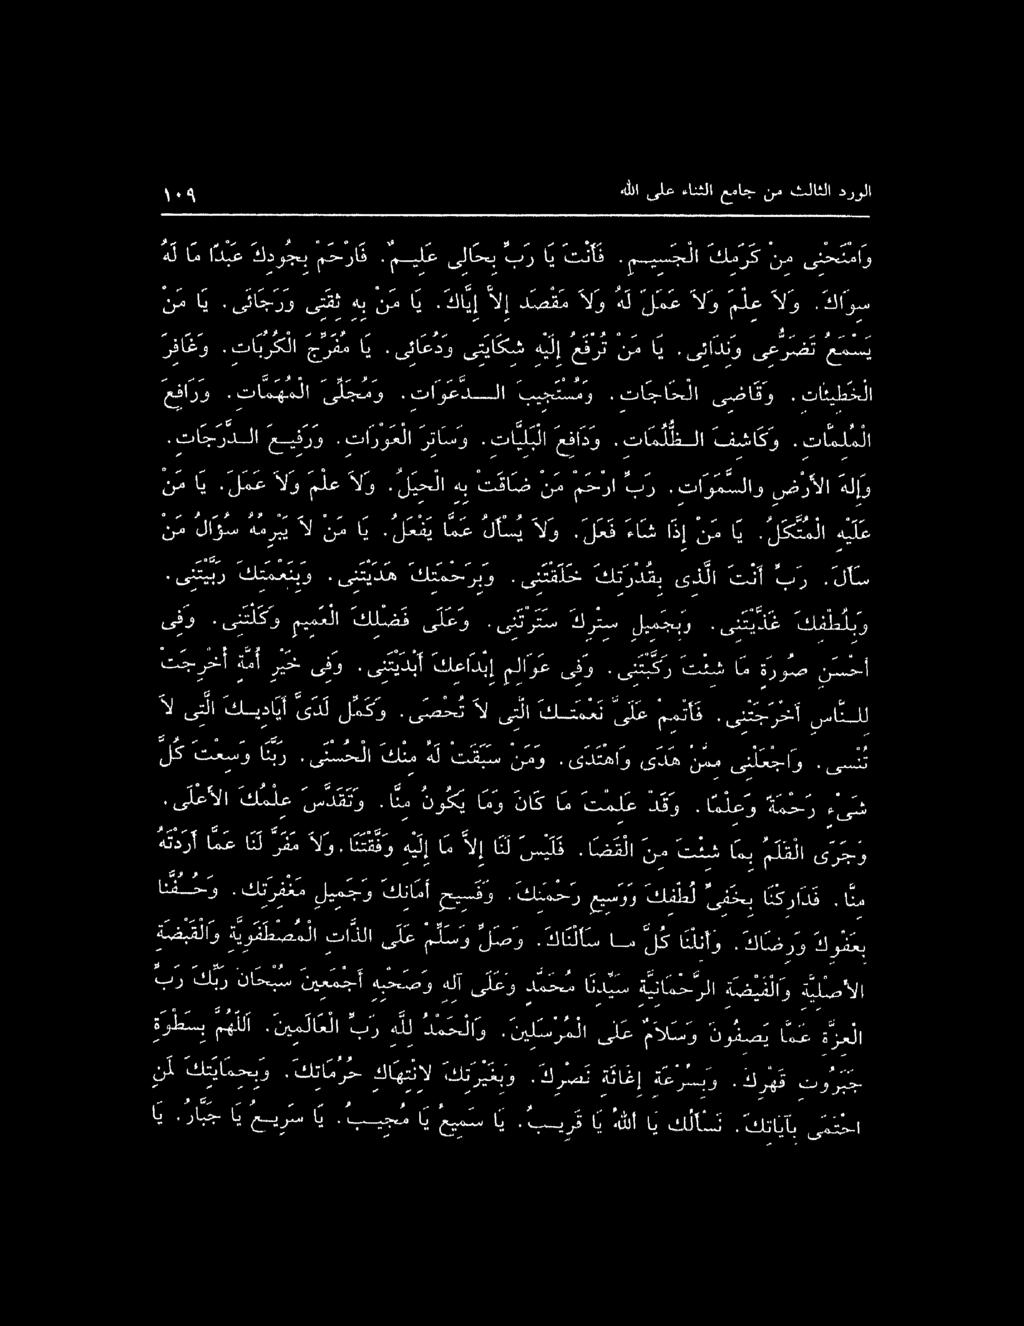 الورد الثالث من جامع الثناء على الله ١٠٩
وَامْنَحْنِى مِنْ كَرَمِكَ الْجَسِيـمِ. فَأَنْتَ يَا رَبِّ بِحَالِى عَلِيـمٌ. فَارْحَمْ بِجُودِكَ عَبْدًا مَا لَهُ
سِوَاكَ. وَلاَ عِلْمَ وَلاَ عَمَلَ لَهُ وَلاَ مَقْصَدَ إِلاَّ إِيَّاكَ. يَا مَنْ بِهِ ثِقَتِى وَرَجَائِى. يَا مَنْ
يَسْمَعُ تَضَرُّعِى وَنِدَائِى. يَا مَنْ تُرْفَعُ إِلَيْهِ شِكَايَتِى وَدُعَائِى. يَا مُفَرِّجَ الْكُرُبَاتِ. وَغَافِرَ
الْخَطِيئَاتِ. وَقَاضِىَ الْحَاجَاتِ. وَمُسْتَجِيبَ الـدَّعَوَاتِ. وَمُجَلِّىَ الْمُهِمَّاتِ. وَرَافِعَ
الْمُلِمَّاتِ. وَكَاشِفَ الـظُّلُمَاتِ. وَدَافِعَ الْبَلِيَّاتِ. وَسَاتِرَ الْعَوْرَاتِ. وَرَفِيـعَ الـدَّرَجَاتِ.
وَإِلَهَ الأَرْضِ والسَّمَوَاتِ. رَبِّ ارْحَمْ مَنْ ضَاقَتْ بِهِ الْحِيَلُ. وَلاَ عِلْمَ وَلاَ عَمَلَ. يَا مَنْ
عَلَيْهِ الْمُتَّكَلُ. يَا مَنْ إِذَا شَاءَ فَعَلَ. وَلاَ يُسْأَلُ عَمَّا يَفْعَلُ. يَا مَنْ لاَ يُبْرِمُهُ سُؤَالُ مَنْ
سَأَلَ. رَبِّ أَنْتَ الَّذِى بِقُدْرَتِكَ خَلَقْتَنِى. وَبِرَحْمَتِكَ هَدَيْتَنِى. وَبِنِعْمَتِكَ رَبَّيْتَنِى.
وَبِلُطْفِكَ غَذَّيْتَنِى. وَبِجَمِيلِ سِتْرِكَ سَتَرْتَنِى. وَعَلَى فَضْلِكَ الْعَمِيمِ وَكَلْتَنِى. وَفِى
أَحْسَنِ صُورَةٍ مَا شِئْتَ رَكَّبْتَنِى. وَفِى عَوَالِمِ إِبْدَاعِكَ أَبْدَيْتَنِى. وَفِى خَيْرِ أُمَّةٍ أُخْرِجَتْ
لِلـنَّاسِ أَخْرَجْتَنِى. فَأَتْمِمْ عَلَىَّ نِعْمَتَـكَ الَّتِى لاَ تُحْصَى. وَكَمِّلْ لَدَىَّ أَيَادِيـكَ الَّتِى لاَ
تُنْسَى. وَاجْعَلْنِى مِمَّنْ هَدَى وَاهْتَدَى. وَمَنْ سَبَقَتْ لَهُ مِنْكَ الْحُسْنَى. رَبَّنَا وَسِعْتَ كُلَّ
شَىْءٍ رَحْمَةً وَعِلْمًا. وَقَدْ عَلِمْتَ مَا كَانَ وَمَا يَكُونُ مِنَّا. وَتَقَدَّسَ عِلْمُكَ الأَعْلَى.
وَجَرَى الْقَلَمُ بِمَا شِئْتَ مِنَ الْقَضَا. فَلَيْسَ لَنَا إِلاَّ مَا إِلَيْهِ وَفَّقْتَنَا. وَلاَ مَفَرَّ لَنَا عَمَّا أَرَدْتَهُ
مِنَّا. فَدَارِكْنَا بِخَفِىِّ لُطْفِكَ وَوَسِيعِ رَحْمَتِكَ. وَفَسِيحِ أَمَانِكَ وَجَمِيلِ مَغْفِرَتِكَ. وَحُـفَّنَا
بِعَفْوِكَ وَرِضَاكَ. وَأَنِلْنَا كُلَّ مـا سَأَلْنَاكَ. وَصَلِّ وَسَلِّمْ عَلَى الذَّاتِ الْمُصْطَفَوِيَّةِ وَالْقَبْضَةِ
الأَصْلِيَّةِ وَالْفَيْضَةِ الرَّحْمَانِيَّةِ سَيِّدِنَا مُحَمَّدٍ وَعَلَى آلِهِ وَصَحْبِهِ أَجْمَعِينَ سُبْحَانَ رَبِّكَ رَبِّ
الْعِزَّةِ عَمَّا يَصِفُونَ وَسَلاَمٌ عَلَى الْمُرْسَلِينَ. وَالْحَمْدُ لِلَّهِ رَبِّ الْعَالَمِينَ. اللَّهُمَّ بِسَطْوَةِ
جَبَرُوتِ قَهْرِكَ. وَبِسُرْعَةِ إِغَاثَةِ نَصْرِكَ. وَبِغَيْرَتِكَ لاِنْتِهَاكِ حُرُمَاتِكَ. وَبِحِمَايَتِكَ لِمَنِ
احْتَمَى بِآيَاتِكَ. نَسْأَلُكَ يَا أَللهُ يَا قَرِيـبُ. يَا سَمِيعُ يَا مُجِيـبُ. يَا سَرِيـعُ يَا جَبَّارُ. يَا